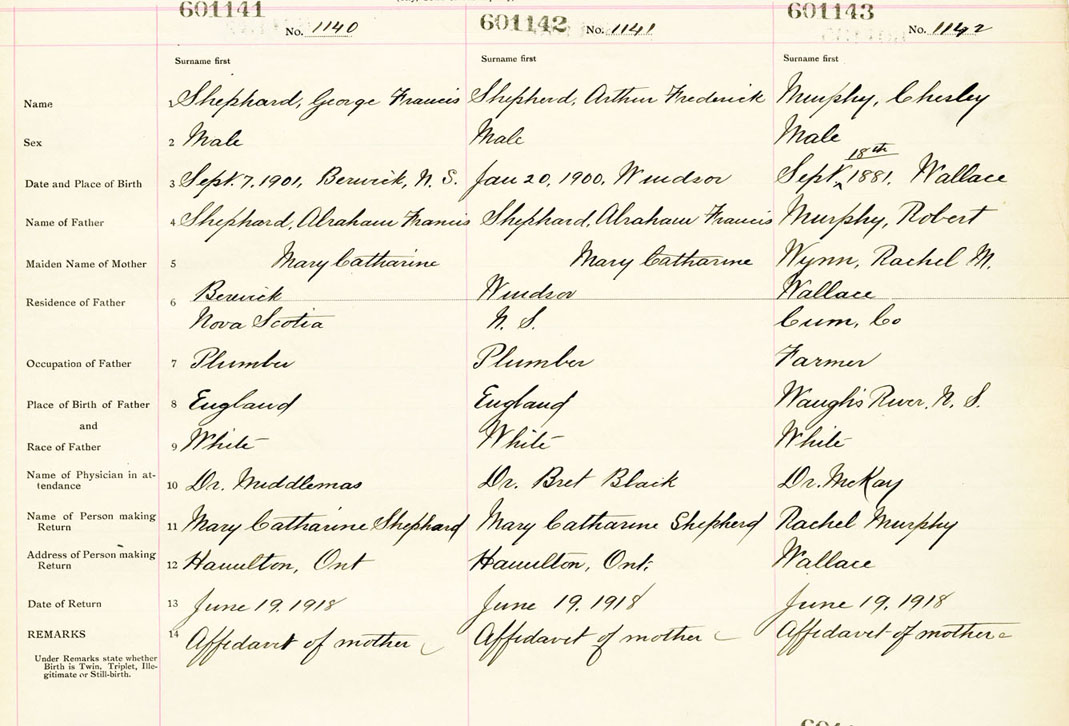 601141
No. 1140
601142
No. 1141
601143
No. 1142
Surname first
Surname first
Surname first
Name 1 Shephard, George Francis Shepherd, Arthur Frederick Murphy, Chesley
Sex 2 Male Male Male
18th
Date and Place of Birth 3 Sept. 7, 1901, Berwick, N. S. Jan 20, 1900, Windsor Sept. ^ 1881. Wallace
Name of Father 4 Shephard, Abraham Francis Shephard, Abraham Francis Murphy, Robert
Maiden Name of Mother 5 Mary Catharine Mary Catharine Wynn, Rachel M.
Residence of Father 6 Berwick Windsor Wallace
Nova Scotia N. S. Cum, Co
Occupation of Father 7 Plumber Plumber Farmer
Place of Birth of Father 8 England England Waugh's River, N. S.
and
Race of Father 9 White White White
Name of Physician in at-
tendance 10 Dr. Middlemas Dr. Bret Black Dr. McKay
Name of Person making
Return 11 Mary Catharine Shephard Mary Catharine Shepherd Rachel Murphy
Address of Person making
Return 12 Hamilton, Ont Hamilton, Ont. Wallace
Date of Return 13 June 19, 1918 June 19, 1918 June 19, 1918
REMARKS 14 Affidavit of mother Affidavit of mother Affidavit of mother
Under Remarks state whether
Birth is Twin, Triplet, Ille-
gitimate or Still-birth.